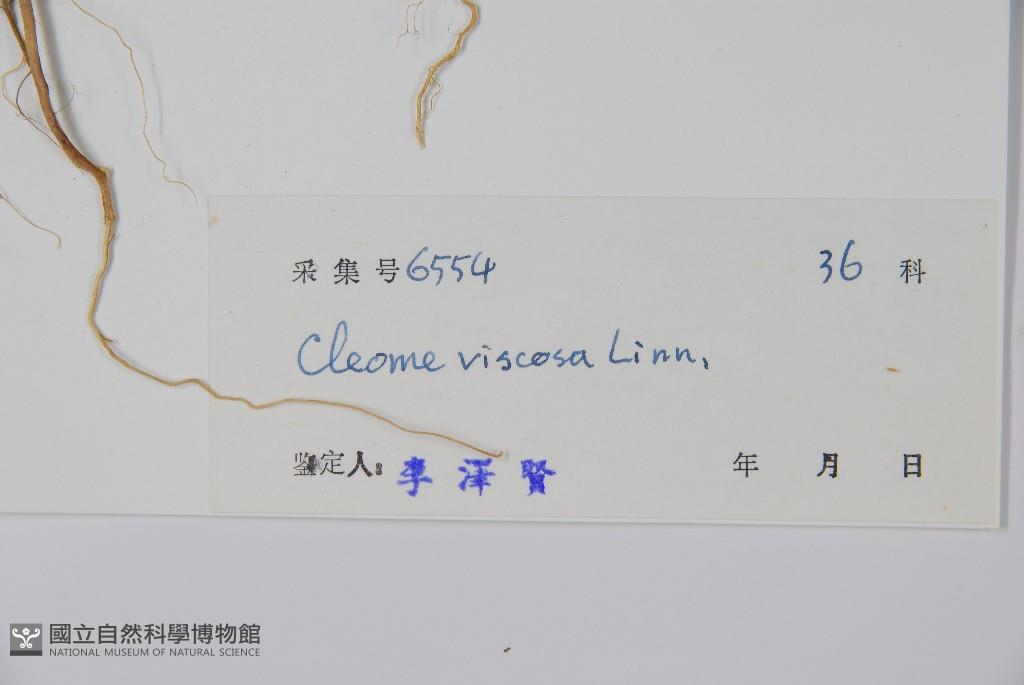 采集号6554 36 科
Cleome viscosa Linn.
鉴定人: 李澤賢 年 月 日
國立自然科學博物館
NATIONAL MUSEUM OF NATURAL SCIENCE